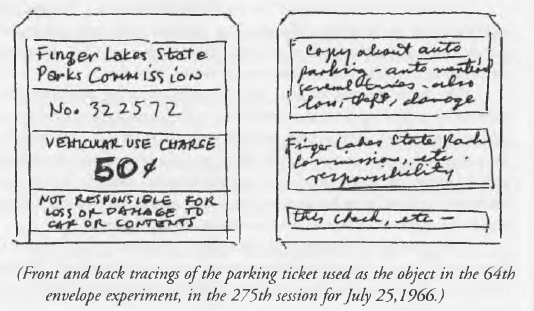 Finger Lakes State
Parks Commission
No. 322572
VEHICULAR USE CHARGE
50¢
NOT RESPONSIBLE FOR
LOSS OR DAMAGE TO
CAR OR CONTENTS
copy about auto
parking - auto mentioned
several times - also
loss, theft, damage
Finger Lakes State Park
Commission, etc.
responsibility
this check, etc -
(Front and back tracings of the parking ticket used as the object in the 64th
envelope experiment, in the 275th session for July 25,1966.)